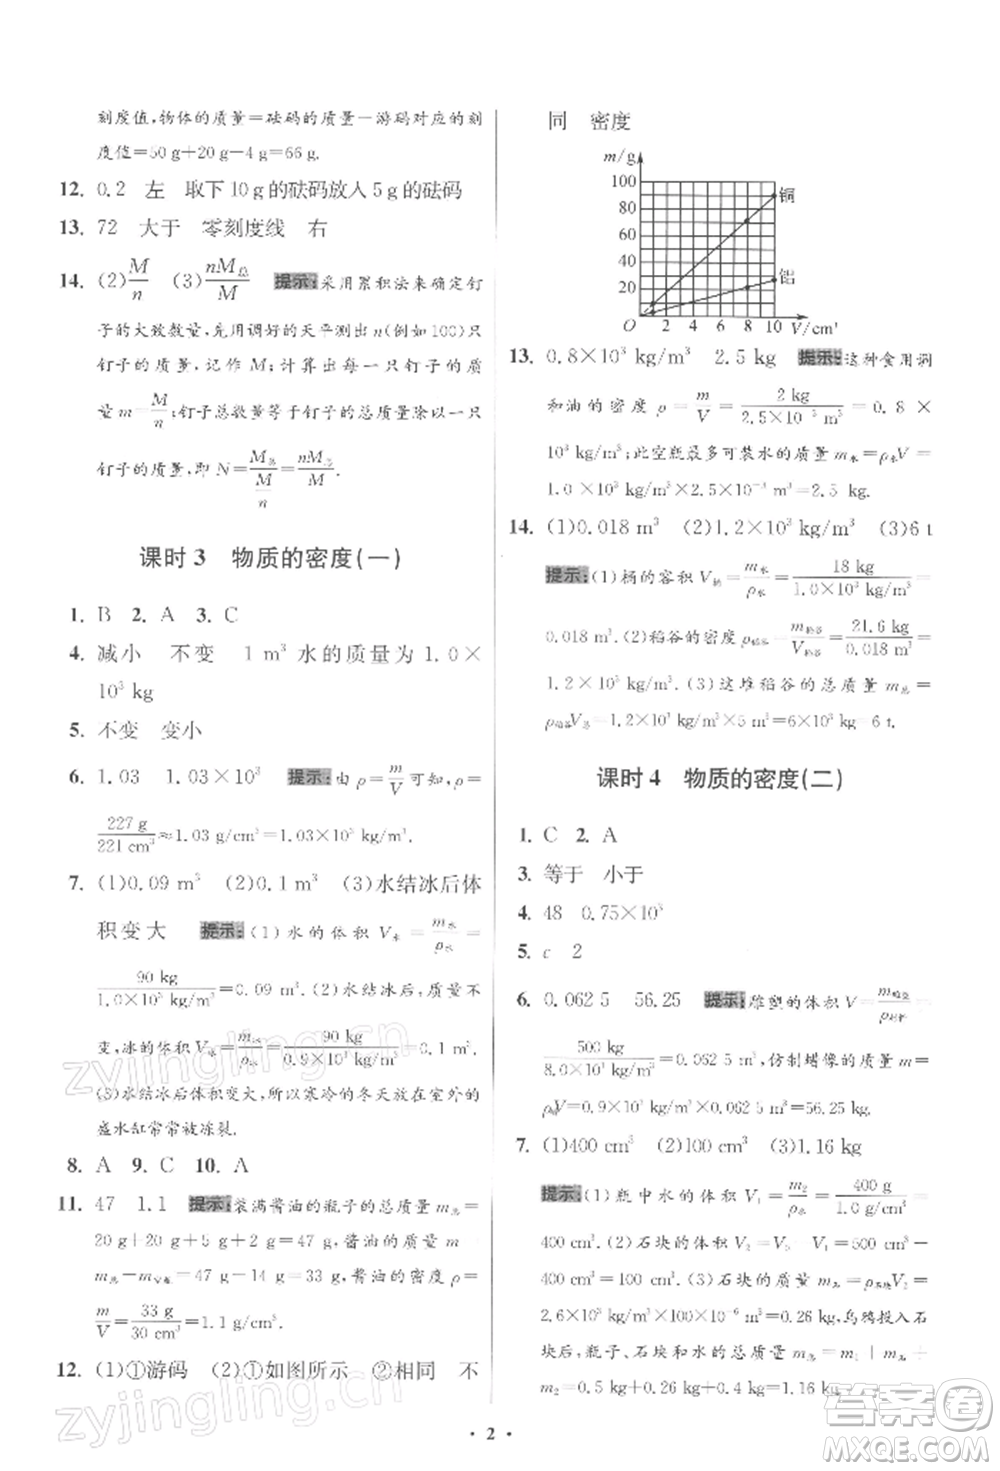 刻度值,物体的质量=砝码的质量一游码对应的刻
度值=50 g+20 g-4 g=66 g.
12. 0.2 左 取下 10 g 的砝码放入 5 g 的砝码
13. 72 大于 零刻度线 右
14. (2) M/n (3) nM总/M 提示:采用累积法来确定钉
子的大致数量,先用调好的天平测出 n(例如 100)只
钉子的质量,记作 M;计算出每一只钉子的质
量 m=M/n;钉子总数量等于钉子的总质量除以每只
钉子的质量,即 N=M总/(M/n)=nM总/M.
课时 3 物质的密度(一)
1. B 2. A 3. C
4. 减小 不变 1 m³ 水的质量为 1.0×
10³ kg
5. 不变 变小
6. 1.03 1.03×10³ 提示:由 ρ=m/V 可知,ρ=
227 g/221 cm³≈1.03 g/cm³=1.03×10³ kg/m³.
7. (1)0.09 m³ (2)0.1 m³ (3)水结冰后体
积变大 提示:(1)水的体积 V水=m水/ρ水=
90 kg/1.0×10³ kg/m³=0.09 m³.(2)水结冰后,质量不
变,冰的体积 V冰=m冰/ρ冰=90 kg/0.9×10³ kg/m³=0.1 m³.
(3)水结冰后体积变大,所以寒冷的冬天放在室外的
盛水缸常常被冻裂.
8. A 9. C 10. A
11. 47 1.1 提示:装满酱油的瓶子的总质量 m总=
20 g+20 g+5 g+2 g=47 g,酱油的质量 m=
m总-m空瓶=47 g-14 g=33 g,酱油的密度 ρ=
m/V=33 g/30 cm³=1.1 g/cm³.
12. (1)①游码 (2)①如图所示 ②相同 不
同 密度
m/g
100
80
60
40
20
O 2 4 6 8 10 V/cm³
铜
铝
13. 0.8×10³ kg/m³ 2.5 kg 提示:这种食用调
和油的密度 ρ=m/V=2 kg/2.5×10⁻³ m³=0.8×
10³ kg/m³;此空瓶最多可装水的质量 m水=ρ水V=
1.0×10³ kg/m³×2.5×10⁻³ m³=2.5 kg.
14. (1)0.018 m³ (2)1.2×10³ kg/m³ (3)6 t
提示:(1)桶的容积 V桶=m水/ρ水=18 kg/1.0×10³ kg/m³=
0.018 m³.(2)稻谷的密度 ρ稻谷=m稻谷/V稻谷=21.6 kg/0.018 m³=
1.2×10³ kg/m³.(3)这堆稻谷的总质量 m总=
ρ稻谷V总=1.2×10³ kg/m³×5 m³=6×10³ kg=6 t.
课时 4 物质的密度(二)
1. C 2. A
3. 等于 小于
4. 48 0.75×10³
5. c 2
6. 0.062 5 56.25 提示:雕塑的体积 V=m雕塑/ρ材料=
500 kg/8.0×10³ kg/m³=0.062 5 m³,仿制蜡像的质量 m=
ρ蜡V=0.9×10³ kg/m³×0.062 5 m³=56.25 kg.
7. (1)400 cm³ (2)100 cm³ (3)1.16 kg
提示:(1)瓶中水的体积 V₁=m₂/ρ水=400 g/1.0 g/cm³=
400 cm³.(2)石块的体积 V₂=V-V₁=500 cm³-
400 cm³=100 cm³.(3)石块的质量 m石=ρ石块V₂=
2.6×10³ kg/m³×100×10⁻⁶ m³=0.26 kg,乌鸦投入石
块后,瓶子、石块和水的总质量 m总=m₁+m石+
m₂=0.5 kg+0.26 kg+0.4 kg=1.16 kg.
• 2 •
zyjingling.cn
zyjingling.cn
答案圈
MXQE.COM